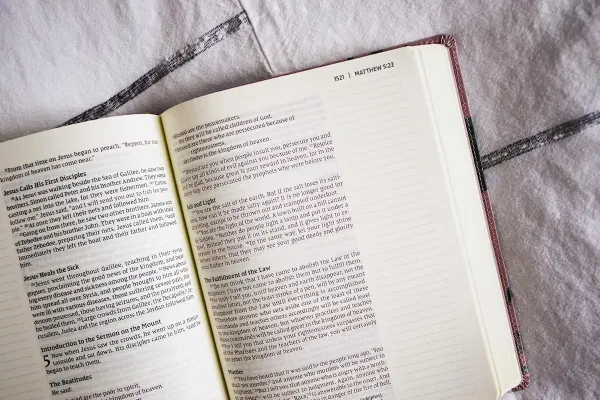 ¹⁷From that time on Jesus began to preach, "Repent, for the
kingdom of heaven has come near."
Jesus Calls His First Disciples
¹⁸As Jesus was walking beside the Sea of Galilee, he saw two
brothers, Simon called Peter and his brother Andrew. They were
casting a net into the lake, for they were fishermen. ¹⁹"Come,
follow me," Jesus said, "and I will send you out to fish for peo-
ple." ²⁰At once they left their nets and followed him.
²¹Going on from there, he saw two other brothers, James son
of Zebedee and his brother John. They were in a boat with their
father Zebedee, preparing their nets. Jesus called them, ²²and
immediately they left the boat and their father and followed
him.
Jesus Heals the Sick
²³Jesus went throughout Galilee, teaching in their syna-
gogues, proclaiming the good news of the kingdom, and heal-
ing every disease and sickness among the people. ²⁴News about
him spread all over Syria, and people brought to him all who
were ill with various diseases, those suffering severe pain, the
demon-possessed, those having seizures, and the paralyzed; and
he healed them. ²⁵Large crowds from Galilee, the Decapolis,
Jerusalem, Judea and the region across the Jordan followed him.
Introduction to the Sermon on the Mount
5 Now when Jesus saw the crowds, he went up on a moun-
tainside and sat down. His disciples came to him, ²and he
began to teach them.
The Beatitudes
He said:
are the poor in spirit,
kingdom of heaven.
1521 | MATTHEW 5:22
are the peacemakers,
for they will be called children of God.
are those who are persecuted because of
righteousness,
for theirs is the kingdom of heaven.
¹¹"Blessed are you when people insult you, persecute you and
say all kinds of evil against you because of me. ¹²Rejoice
and be glad, because great is your reward in heaven, for in the
same way they persecuted the prophets who were before you.
Salt and Light
¹³"You are the salt of the earth. But if the salt loses its salti-
ness, how can it be made salty again? It is no longer good for
anything, except to be thrown out and trampled underfoot.
¹⁴"You are the light of the world. A town built on a hill cannot
be hidden. ¹⁵Neither do people light a lamp and put it under a
bowl. Instead they put it on its stand, and it gives light to ev-
eryone in the house. ¹⁶In the same way, let your light shine
before others, that they may see your good deeds and glorify
your Father in heaven.
The Fulfillment of the Law
¹⁷"Do not think that I have come to abolish the Law or the
Prophets; I have not come to abolish them but to fulfill them.
¹⁸For truly I tell you, until heaven and earth disappear, not the
smallest letter, not the least stroke of a pen, will by any means
disappear from the Law until everything is accomplished.
¹⁹Therefore anyone who sets aside one of the least of these
commands and teaches others accordingly will be called least
in the kingdom of heaven, but whoever practices and teaches
these commands will be called great in the kingdom of heaven.
²⁰For I tell you that unless your righteousness surpasses that
of the Pharisees and the teachers of the law, you will certainly
not enter the kingdom of heaven.
Murder
²¹"You have heard that it was said to the people long ago, 'You
shall not murder, and anyone who murders will be subject to
judgment.' ²²But I tell you that anyone who is angry with a broth-
er or sister will be subject to judgment. Again, anyone who